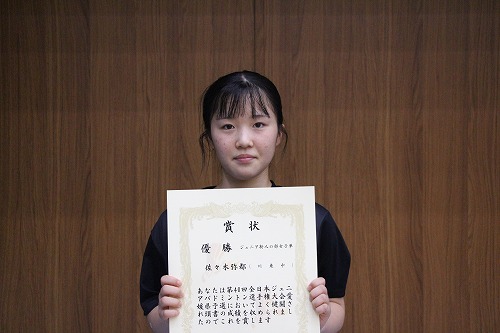 賞状
優勝 ジュニア新人の部女子単
佐々木弥都(川東中)
あなたは第41回全日本ジュニ
アバドミントン選手権大会愛
媛県予選においてよく健闘さ
れ頭書の成績を収められまし
たのでこれを賞します